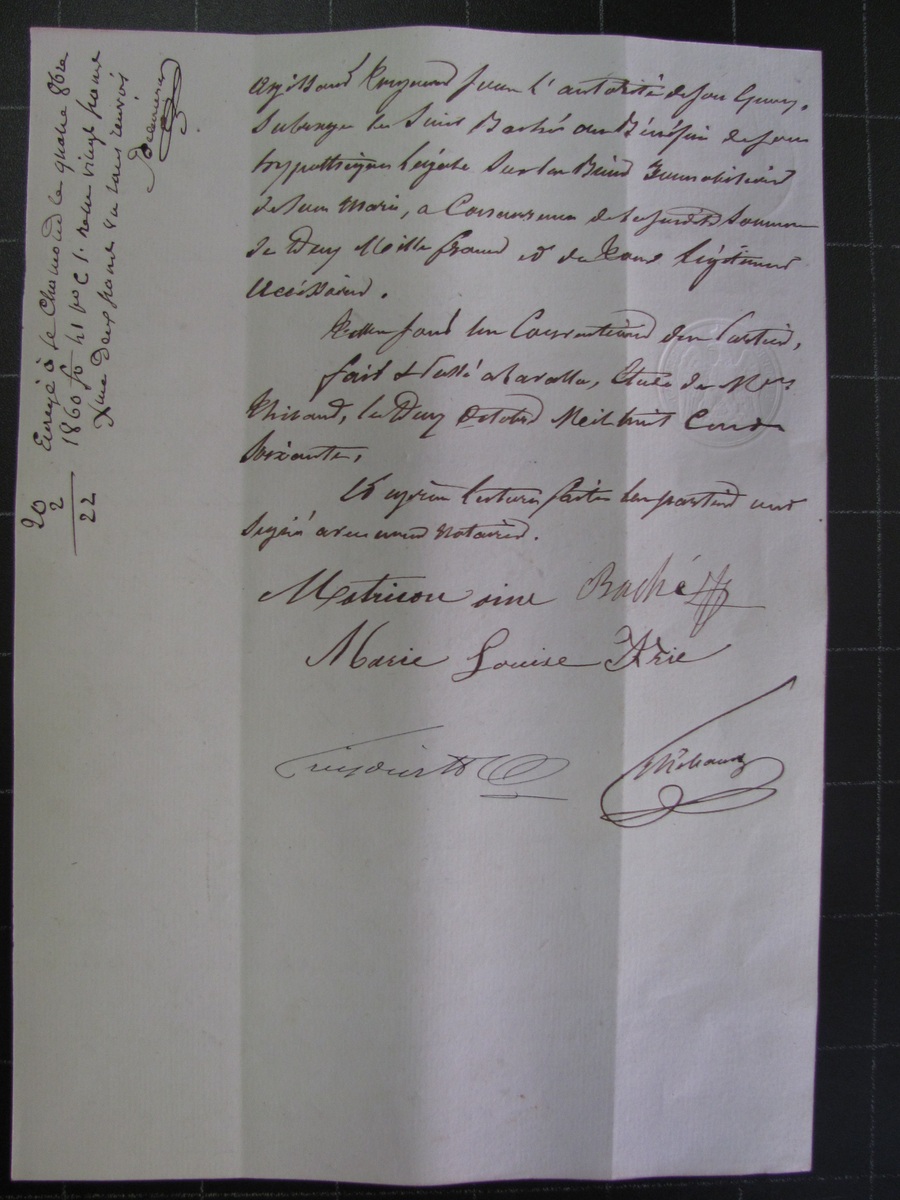 agissant toujours sous l'autorité de son époux,
subroge le Sieur Baché au Bénéfice de son
hypothèque légale sur les Biens Immobiliers
de son Mari, a Concurrence de la susdite somme
de Deux Mille francs et de tous légitimes
accessoires.
Telles sont les Conventions des Parties,
fait & Passé a lavalla, Etude de Me
Thibaud, le Deux Octobre Mil huit Cent
Soixante,
Et après lecture faite les parties ont
signé avec nous Notaires.
Matricon aine Baché
Marie Louise
Thibaud
Enregé à St Chamond le quatre 8bre
1860 fo 41 vo C 1. reçu vingt francs
Xme deux francs
20
2
22